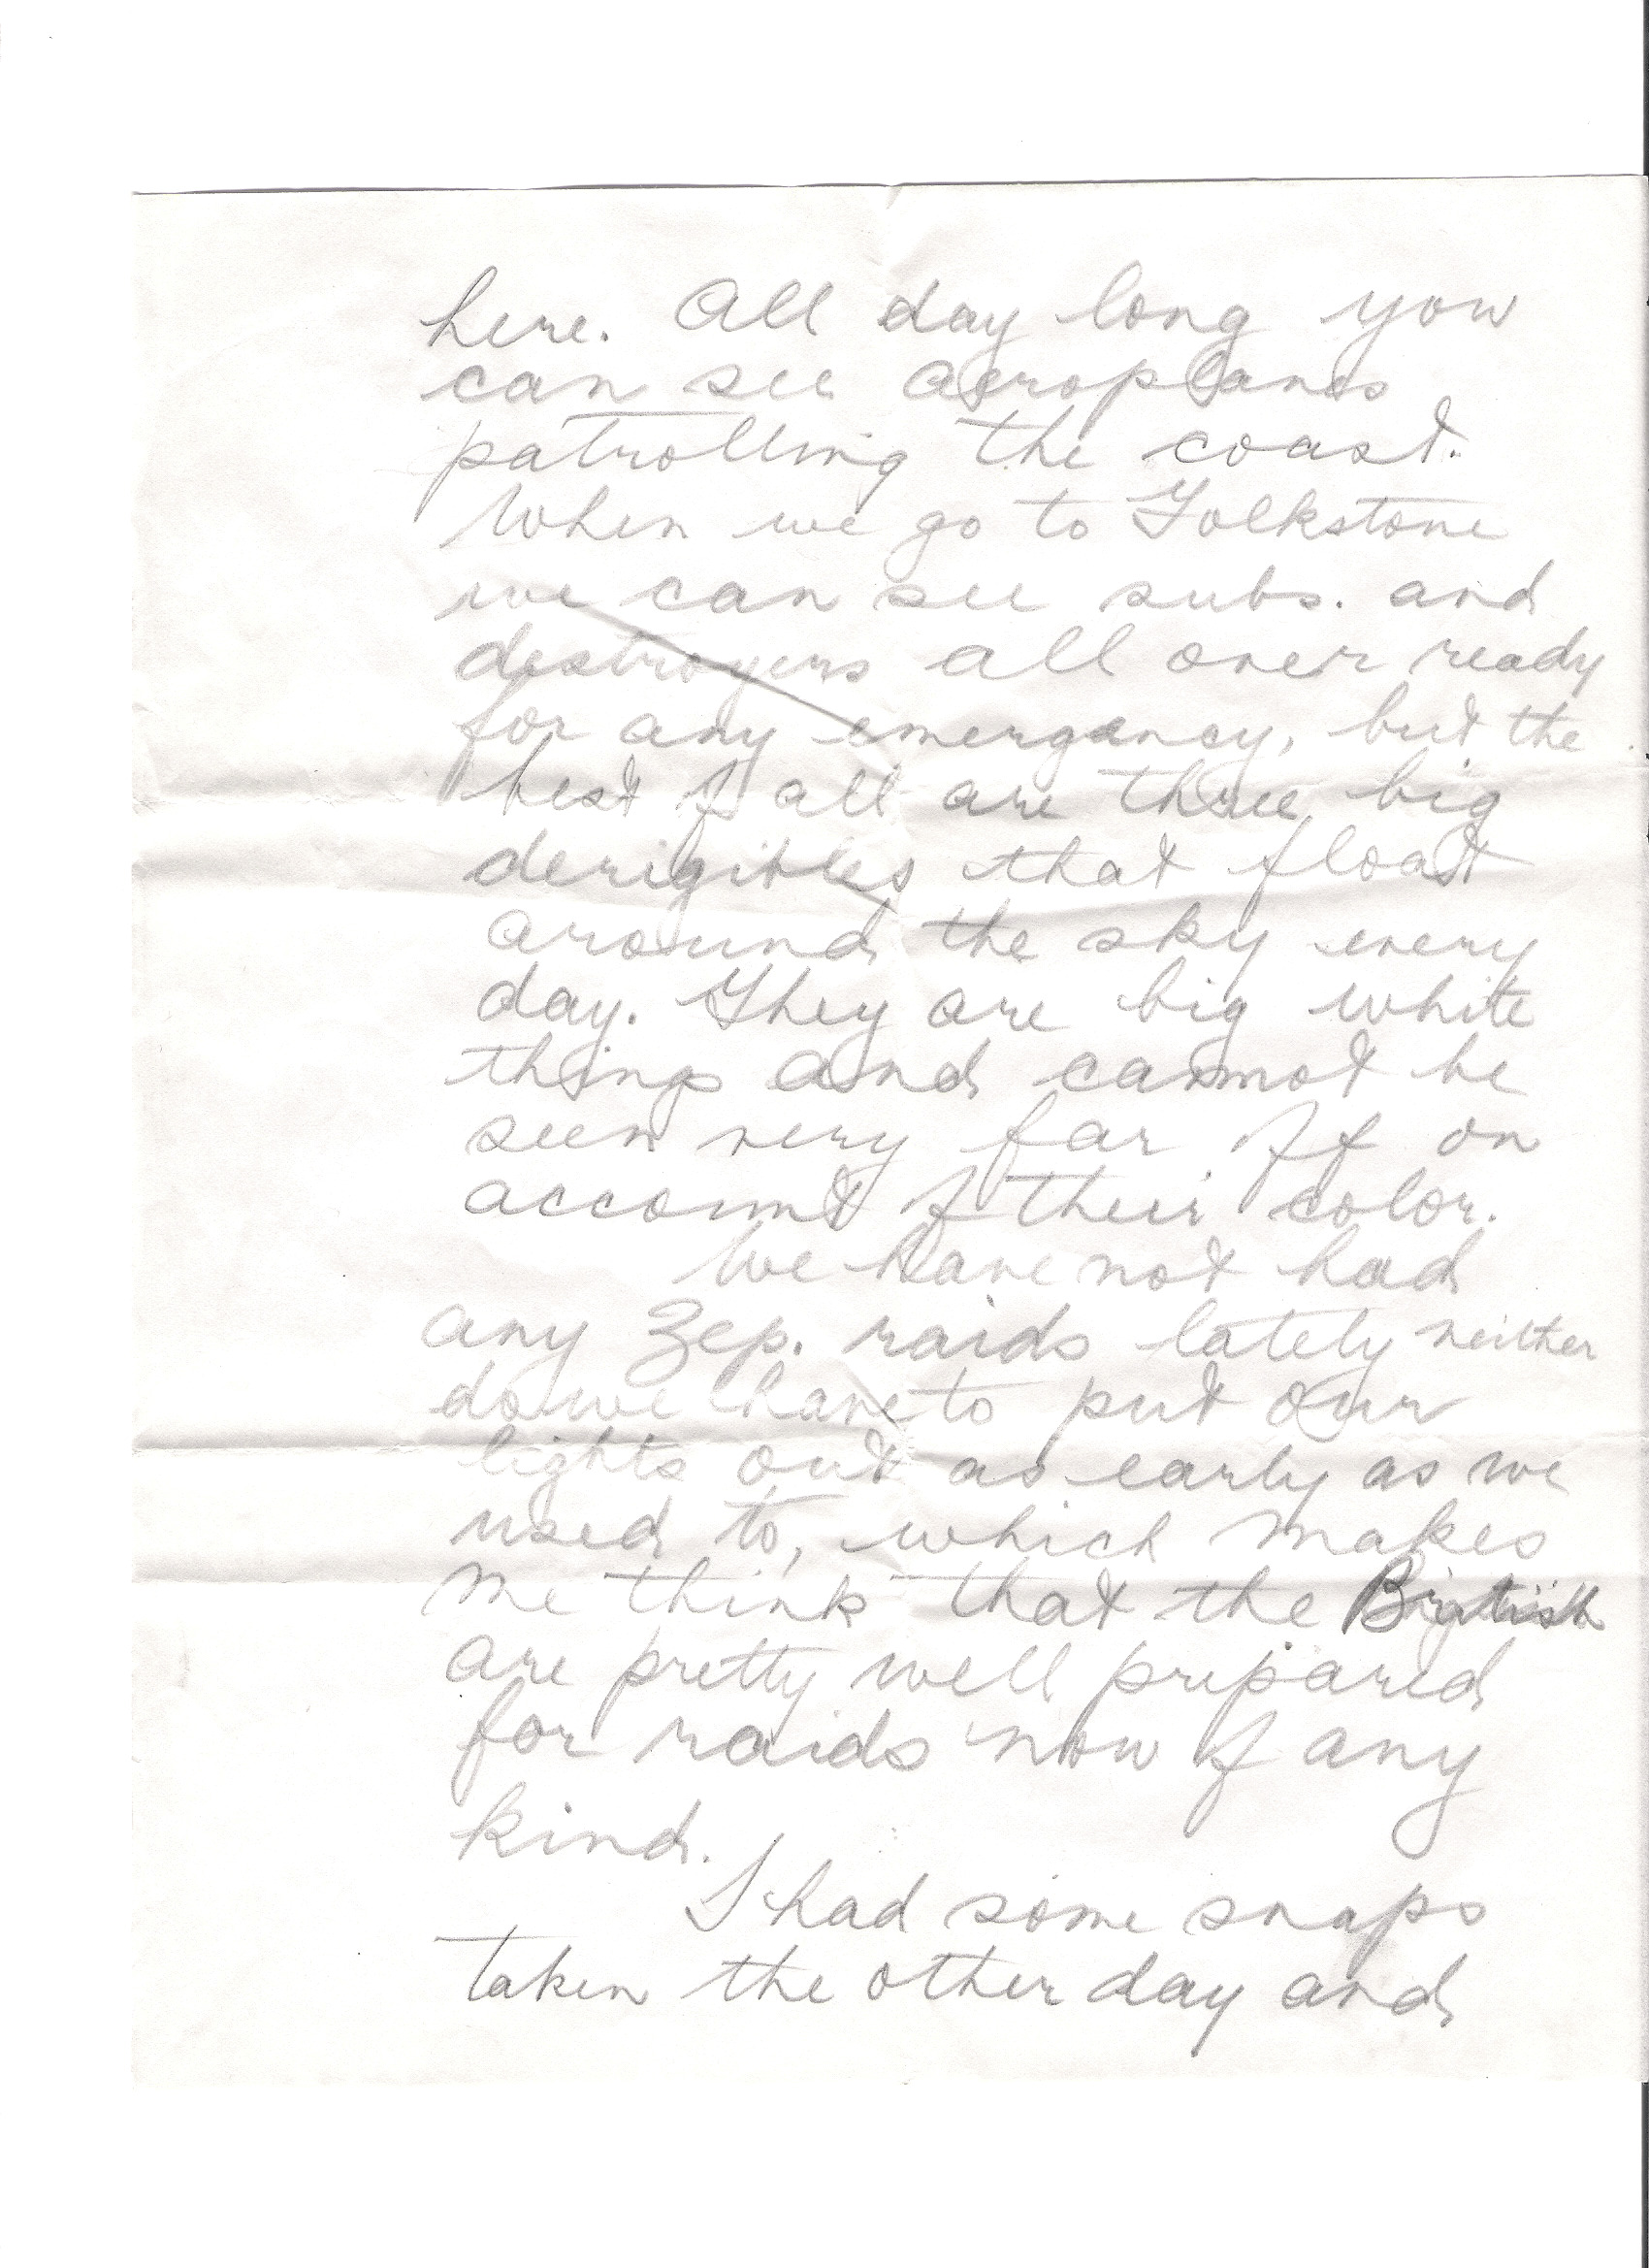 here. All day long you
can see aeroplanes
patrolling the coast.
When we go to Folkstone
we can see subs. and
destroyers all over ready
for any emergency, but the
best of all are three big
derigibles that float
around the sky every
day. They are big white
things and cannot be
seen very far off on
account of their color.
We have not had
any Zep. raids lately neither
do we have to put our
lights out as early as we
used to, which makes
me think that the British
are pretty well prepared
for raids now of any
kind.
I had some snaps
taken the other day and